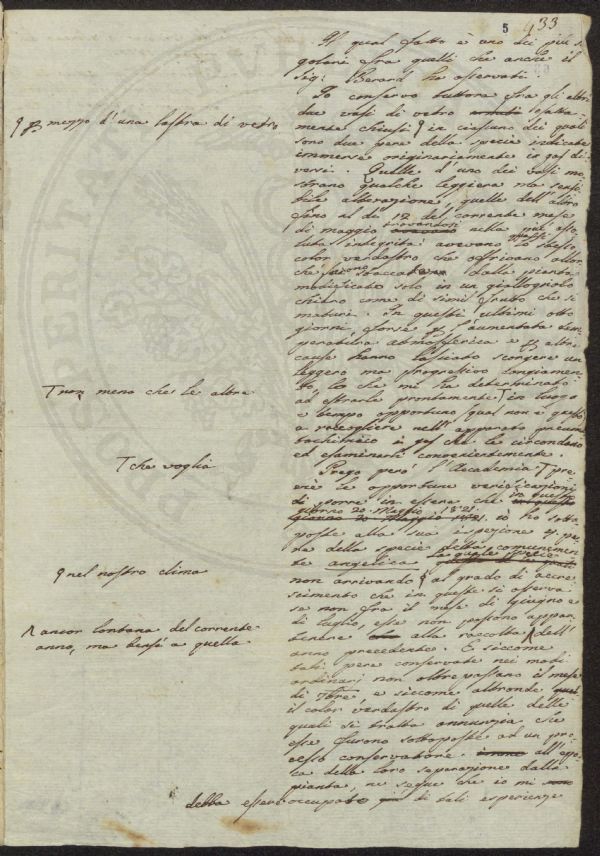 5 433
Il qual fatto è uno dei più si-
golari fra quelli che anche il
Sig: Berard ha osservati.
Io conservo tuttora fra gli altri
due vasi di vetro esatta-
mente chiusi in ciascuno dei quali
sono due pera della specie indicata
immerse originariamente in gas di
versi. Quelle d'uno dei vasi mo-
strano qualche leggiera ma sensi-
bile alterazione, quelle dell'altro
fino al dì 12 del corrente mese
di maggio trovandosi nella più asso-
luta integrità avevano quasi lo stesso
color verdastro che offrivano allor
che si sono staccate dalla pianta
modificato solo in un giallognolo
chiaro come di simil frutto che si
maturi. In questi ultimi otto
giorni, forse p l'aumentata tem-
peratura atmosferica e p altre
cause hanno lasciato scorgere un
leggero ma progressivo cangiamen-
to, lo che mi ha determinato
ad estrarle prontamente in luogo
e tempo opportuno, qual non è questo
a raccogliere nell'apparato pneuma
tochimico i gas che le circondano
ed esaminarli convenientemente.
Prego però l'Accademia pre-
vie le opportune verificazioni
di porre in essere che in questo
giorno 20 Maggio 1821. io ho sotto-
poste alla sua ispezione 4 pe-
ra della specie detta comunemen-
te angelica le quali
non arrivando al grado di accre
scimento che in queste si osserva
se non fra il mese di Giugno e
di luglio, esse non possono appar-
tenere alla raccolta dell'
anno precedente. E siccome
tali pere conservate nei modi
ordinari non oltrepassano il mese
di 7bre, e siccome altronde
il color verdastro di quelle delle
quali si tratta annunzia che
esse furono sottoposte ad un pro-
cesso conservatore all'epo-
ca della loro separazione dalla
pianta, ne segue che io mi
debba essere occupato di tali esperienze
p mezzo d'una lastra di vetro
non meno che le altre
che voglia
nel nostro clima
ancor lontana del corrente
anno, ma bensì a quella